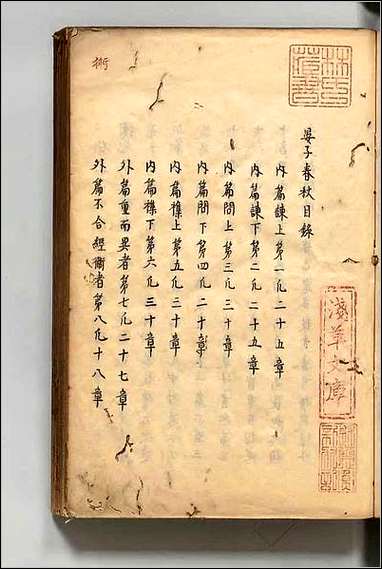 晏子春秋目錄
内篇諫上第一凡二十五章
内篇諫下第二凡二十五章
内篇問上第三凡三十章
内篇問下第四凡二十章
内篇襍上第五凡三十章
内篇襍下第六凡三十章
外篇重而異者第七凡二十七章
外篇不合經術者第八凡十八章
術
淺草文庫